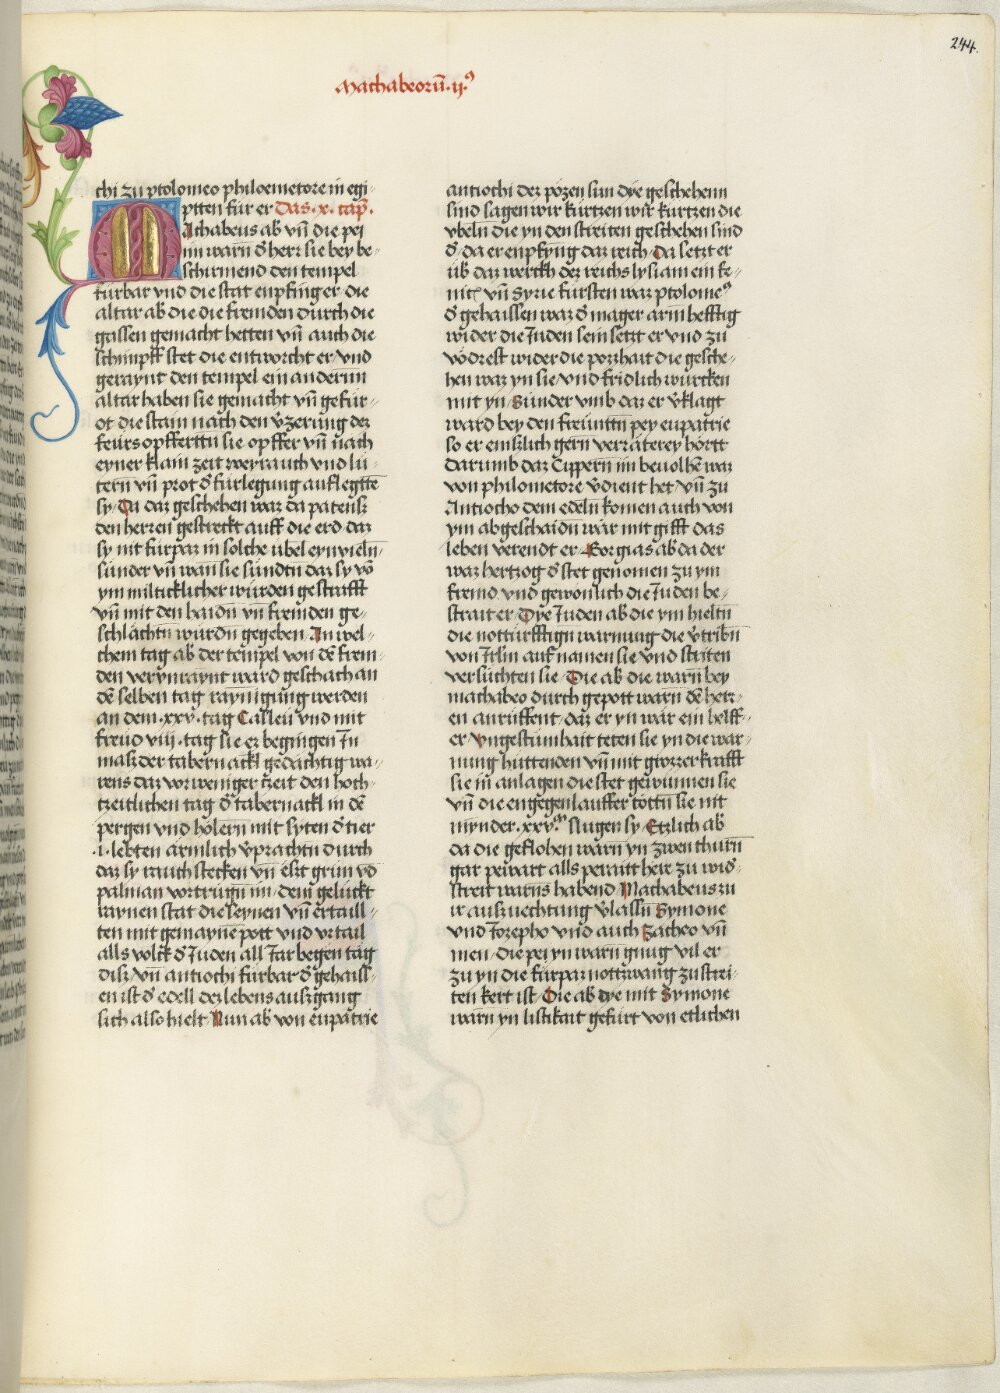 244.
Machabeorū .ij.⁹
chi zu ptolomeo philoemetore in egi⸗
ptten für er Das .x. cap̄.
Machabeus ab vn̄ die pei
im warn d̄ herr sie bey be⸗
schirmend den tempel
fürbar vnd die stat enpfing er die
altar ab die die fremden durch die
gassen gemacht hetten vn̄ auch die
schimpff stet die entworcht er vnd
geraynt den tempel ein anderm
altar haben sie gemacht vn̄ gefür⸗
ot die stain nach den v̄zerung der
feürs opfferttn sie opffer vn̄ nach
eyner klain zeit weyrauch vnd lu⸗
tern vn̄ prot d̄ fürlegung auflegtte
sy Du daz geschehen waz da patens
den herren gestreckt auff die erd daz
sy nit fürpaz in solche übel eynvieln̄
sünder vn̄ wan sie sündtn daz sy vō
ym milticklicher würden gestrafft
vn̄ mit den haidn̄ vn̄ fremden ge⸗
schlächtn̄ würdn̄ gegeben In wel⸗
chem tag ab der tempel von dē frem⸗
den verynraynt ward geschach an
dē selben tag raynigung werden
an dem .xxv. tag Casleu vnd mit
freud viii. tag sie ez begingen In
masz der tabernackl gedächtig wa⸗
rens daz vor weniger tzeit den hoch⸗
tzeitlichen tag d̄ tabernackl in dē
pergen vnd hölern mit syten d̄ tier
.i. lebten ärmlich v̄prachtn̄ durch
daz sy rauch stecken vn̄ elszt grün vd̄
palman vortrügn̄ im dem gelückt
raynen stat die seynen vn̄ ertaill⸗
ten mit gemaynē pott vnd vrtail
alls volck d̄ Juden all Jar begen tag
disz vn̄ antiochi fürbar d̄ gehaiss⸗
en ist d̄ edell dez lebens auszgang
sich also hielt Nun ab von eupatrie
antiochi dez pözen sun dye geschehenn
sind sagen wir kürtzen wir kürtzen die
vbeln̄ die yn den streiten geschehen sind
d̄ da er enpfyng daz reich Da setzt er
üb̄ daz werckh dez reichs lysiam ein fe⸗
nic̄ vn̄ Syrie fürsten waz ptolome⁹
d̄ gehaissen waz d̄ mager arm hefftig
wider die Juden sein setzt er vnd zu
vödrest wider die pozhait die gesche⸗
hen waz yn sie vnd fridlich würcken
mit yn Sünder vmb daz er v̄klagt
ward bey den freüntn̄ pey eupatrie
so er einszlich gern verräterey hörtt
Darumb daz Cyppern im beuolhē waz
von philometore v̄dient het vn̄ zu
Antiocho dem edeln̄ komen auch von
ym abgeschaidn̄ wär mit gifft das
leben verendt er Gorgias ab da der
waz hertzog d̄ stet genomen zu ym
fremd vnd gewonlich die Juden be⸗
strait er Dye Juden ab die ym hieltn̄
die notturfftign warnung die v̄tribn̄
von Jrlm auf namen sie vnd striten
versüchten sie Die ab die warn̄ bey
machabeo durch gepott warn̄ dē herr⸗
en anrüffent daz er yn wär ein helff⸗
er Vngestümhait teten sie yn die war⸗
nung hüttenden vn̄ mit grozzer krafft
sie im̄ anlagen die stet gewunnen sie
vn̄ die engegen lauffer tottn̄ sie nit
mynder .xxv.ᵐ slugen sy Etzlich ab
da die geflohen warn yn zwen thurn̄
gar pewart alls peraitt heit zu wid̄
streit warns habend Machabeus zu
ir auszuechtung v̄lassn̄ Symone
vnd Jozepho vnd auch Zacheo vn̄
men die pei yn warn gnug vil er
zu yn die fürpaz nottzwang zu strei⸗
ten kert ist Die ab dye mit Symone
warn yn listikait gefürt von etlichen